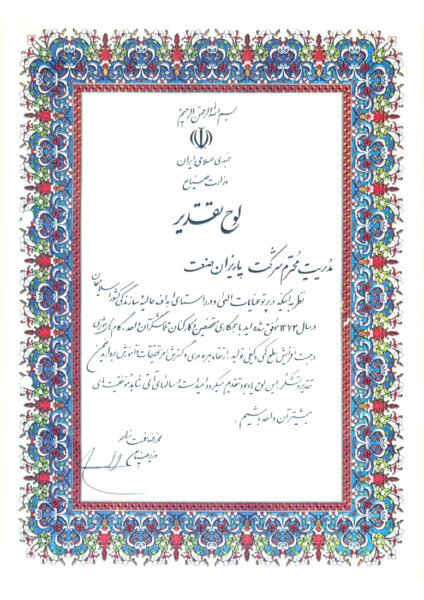 بسم الله الرحمن الرحیم
جمهوری اسلامی ایران
وزارت صنایع
لوح تقدیر
مدیریت محترم شرکت پاریزان صنعت
نظر به اینکه در پرتو عنایات الهی و در راستای اهداف عالیه سازندگی کشور اسلامیمان
در سال ۱۳۷۳ موفق شده اید با همکاری متخصصین و کارکنان تلاشگر آن واحد گام مؤثری
در جهت افزایش سطح کمی و کیفی تولید، ارتقاء بهره وری و گسترش امر تحقیقات و آموزش بردارید ضمن
تقدیر و تشکر این لوح یادبود تقدیم میگردد امید است در سالهای آتی شاهد موفقیت های
بیشتر آن واحد باشیم .
محمدرضا نعمت زاده
وزیر صنایع